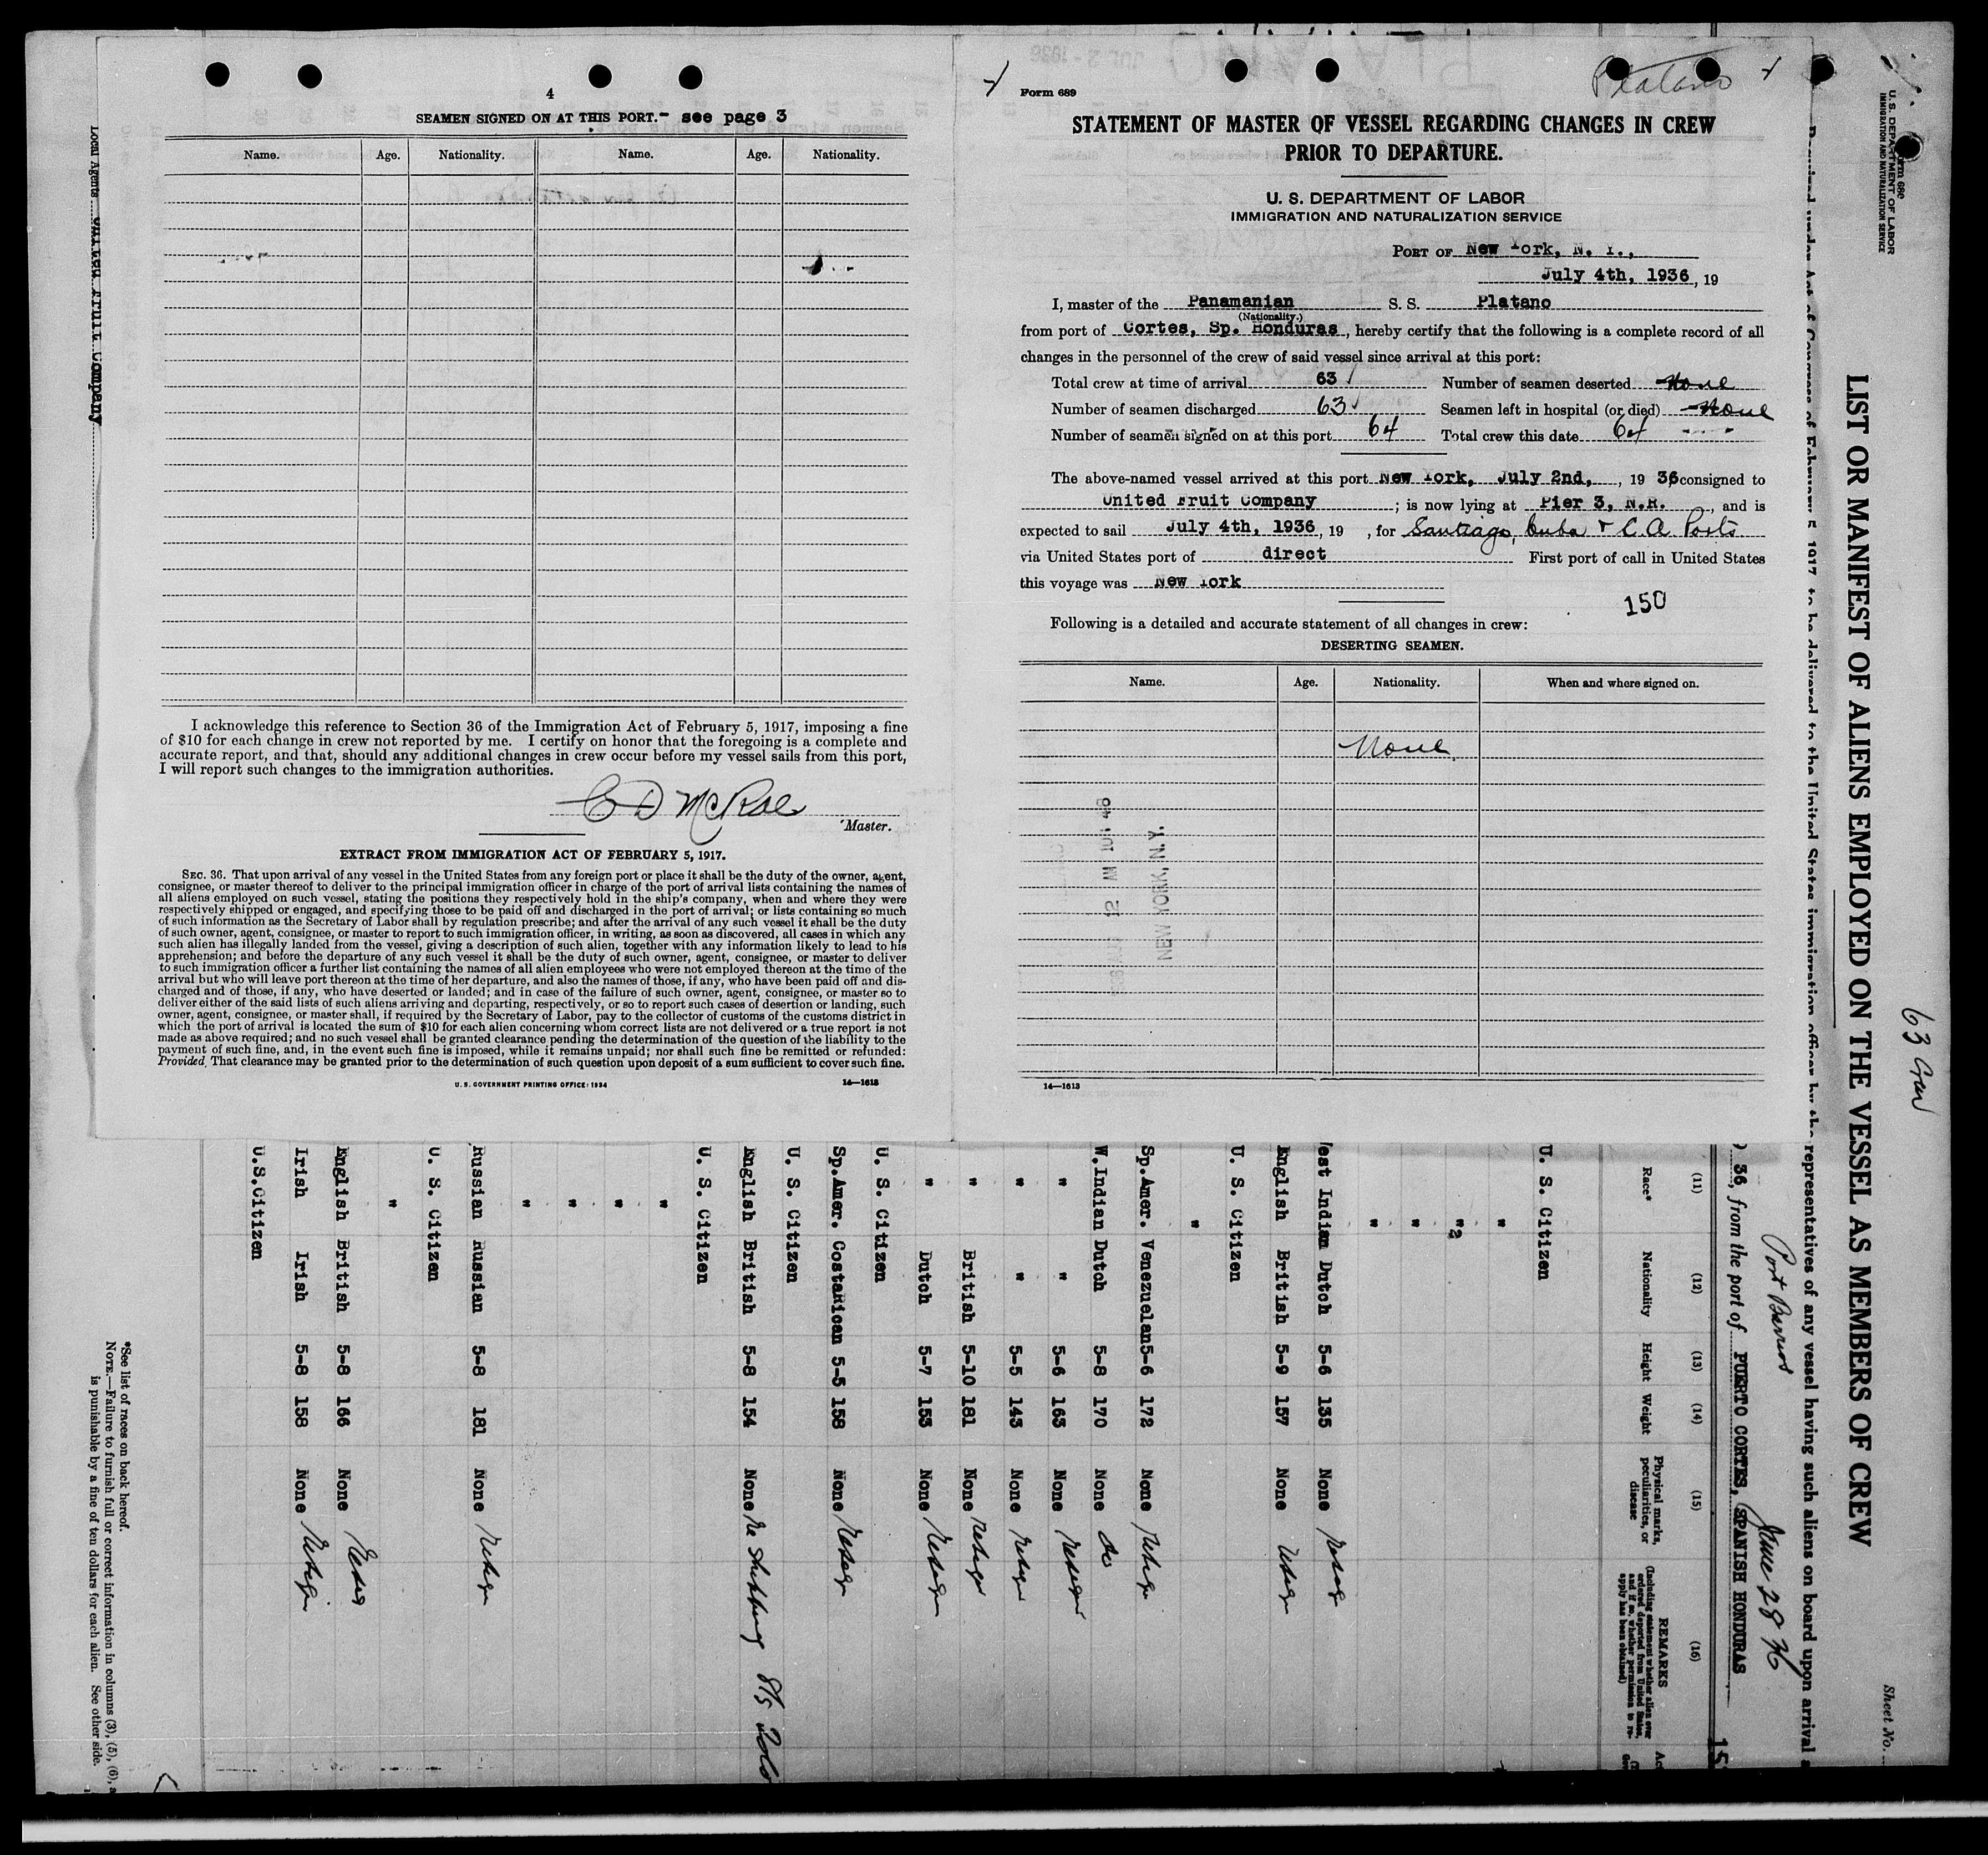 4
SEAMEN SIGNED ON AT THIS PORT.- see page 3
Name. Age. Nationality. Name. Age. Nationality.
I acknowledge this reference to Section 36 of the Immigration Act of February 5, 1917, imposing a fine
of $10 for each change in crew not reported by me. I certify on honor that the foregoing is a complete and
accurate report, and that, should any additional changes in crew occur before my vessel sails from this port,
I will report such changes to the immigration authorities.
C D McRae
Master.
EXTRACT FROM IMMIGRATION ACT OF FEBRUARY 5, 1917.
SEC. 36. That upon arrival of any vessel in the United States from any foreign port or place it shall be the duty of the owner, agent,
consignee, or master thereof to deliver to the principal immigration officer in charge of the port of arrival lists containing the names of
all aliens employed on such vessel, stating the positions they respectively hold in the ship's company, when and where they were
respectively shipped or engaged, and specifying those to be paid off and discharged in the port of arrival; or lists containing so much
of such information as the Secretary of Labor shall by regulation prescribe; and after the arrival of any such vessel it shall be the duty
of such owner, agent, consignee, or master to report to such immigration officer, in writing, as soon as discovered, all cases in which any
such alien has illegally landed from the vessel, giving a description of such alien, together with any information likely to lead to his
apprehension; and before the departure of any such vessel it shall be the duty of such owner, agent, consignee, or master to deliver
to such immigration officer a further list containing the names of all alien employees who were not employed thereon at the time of the
arrival but who will leave port thereon at the time of her departure, and also the names of those, if any, who have been paid off and dis-
charged and of those, if any, who have deserted or landed; and in case of the failure of such owner, agent, consignee, or master so to
deliver either of the said lists of such aliens arriving and departing, respectively, or so to report such cases of desertion or landing, such
owner, agent, consignee, or master shall, if required by the Secretary of Labor, pay to the collector of customs of the customs district in
which the port of arrival is located the sum of $10 for each alien concerning whom correct lists are not delivered or a true report is not
made as above required; and no such vessel shall be granted clearance pending the determination of the question of the liability to the
payment of such fine, and, in the event such fine is imposed, while it remains unpaid; nor shall such fine be remitted or refunded:
Provided, That clearance may be granted prior to the determination of such question upon deposit of a sum sufficient to cover such fine.
U. S. GOVERNMENT PRINTING OFFICE: 1934 14—1613
Form 689
Platano
STATEMENT OF MASTER OF VESSEL REGARDING CHANGES IN CREW
PRIOR TO DEPARTURE.
U. S. DEPARTMENT OF LABOR
IMMIGRATION AND NATURALIZATION SERVICE
PORT OF New York, N. Y.,
July 4th, 1936, 19
I, master of the Panamanian S. S. Platano
(Nationality.)
from port of Cortes, Sp. Honduras, hereby certify that the following is a complete record of all
changes in the personnel of the crew of said vessel since arrival at this port:
Total crew at time of arrival 63 Number of seamen deserted None
Number of seamen discharged 63 Seamen left in hospital (or died) None
Number of seamen signed on at this port 64 Total crew this date 64
The above-named vessel arrived at this port New York, July 2nd, , 19 36, consigned to
United Fruit Company ; is now lying at Pier 3, N.R. , and is
expected to sail July 4th, 1936, 19 , for Santiago, Cuba & C.A. Ports
via United States port of direct First port of call in United States
this voyage was New York
150
Following is a detailed and accurate statement of all changes in crew:
DESERTING SEAMEN.
Name. Age. Nationality. When and where signed on.
None
12 AM 10: 48
NEW YORK, N.Y.
14—1613
U. S. DEPARTMENT OF LABOR
IMMIGRATION AND NATURALIZATION SERVICE
Sheet No.
63 Crew
LIST OR MANIFEST OF ALIENS EMPLOYED ON THE VESSEL AS MEMBERS OF CREW
Required under Act of Congress of February 5, 1917, to be delivered to the United States immigration officer by the representatives of any vessel having such aliens on board upon arrival
Port Barrios June 28 36
36, from the port of PUERTO CORTES, SPANISH HONDURAS
15
(11) (12) (13) (14) (15) (16)
Race* Nationality Height Weight Physical marks, peculiarities, or disease REMARKS (Including statement whether alien ever ordered deported from United States, and if so, whether permission to reapply has been obtained)
U. S. Citizen
"
" 2
"
"
West Indian Dutch 5-6 135 None
English British 5-9 157 None
U. S. Citizen
"
Sp.Amer. Venezuelan 5-6 172 None
W.Indian Dutch 5-8 170 None do
" " 5-6 163 None
" " 5-5 143 None
" British 5-10 181 None
" Dutch 5-7 153 None
U. S. Citizen
Sp.Amer. CostaRican 5-5 158 None
U. S. Citizen
English British 5-8 154 None
U. S. Citizen
"
"
"
"
Russian Russian 5-8 181 None
U. S. Citizen
"
English British 5-8 166 None
Irish Irish 5-8 158 None
U.S.Citizen
*See list of races on back hereof.
NOTE.—Failure to furnish full or correct information in columns (3), (5), (6),
is punishable by a fine of ten dollars for each alien. See other side.
Local Agents United Fruit Company